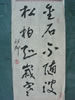 金石不隨波
松柏知歲寒